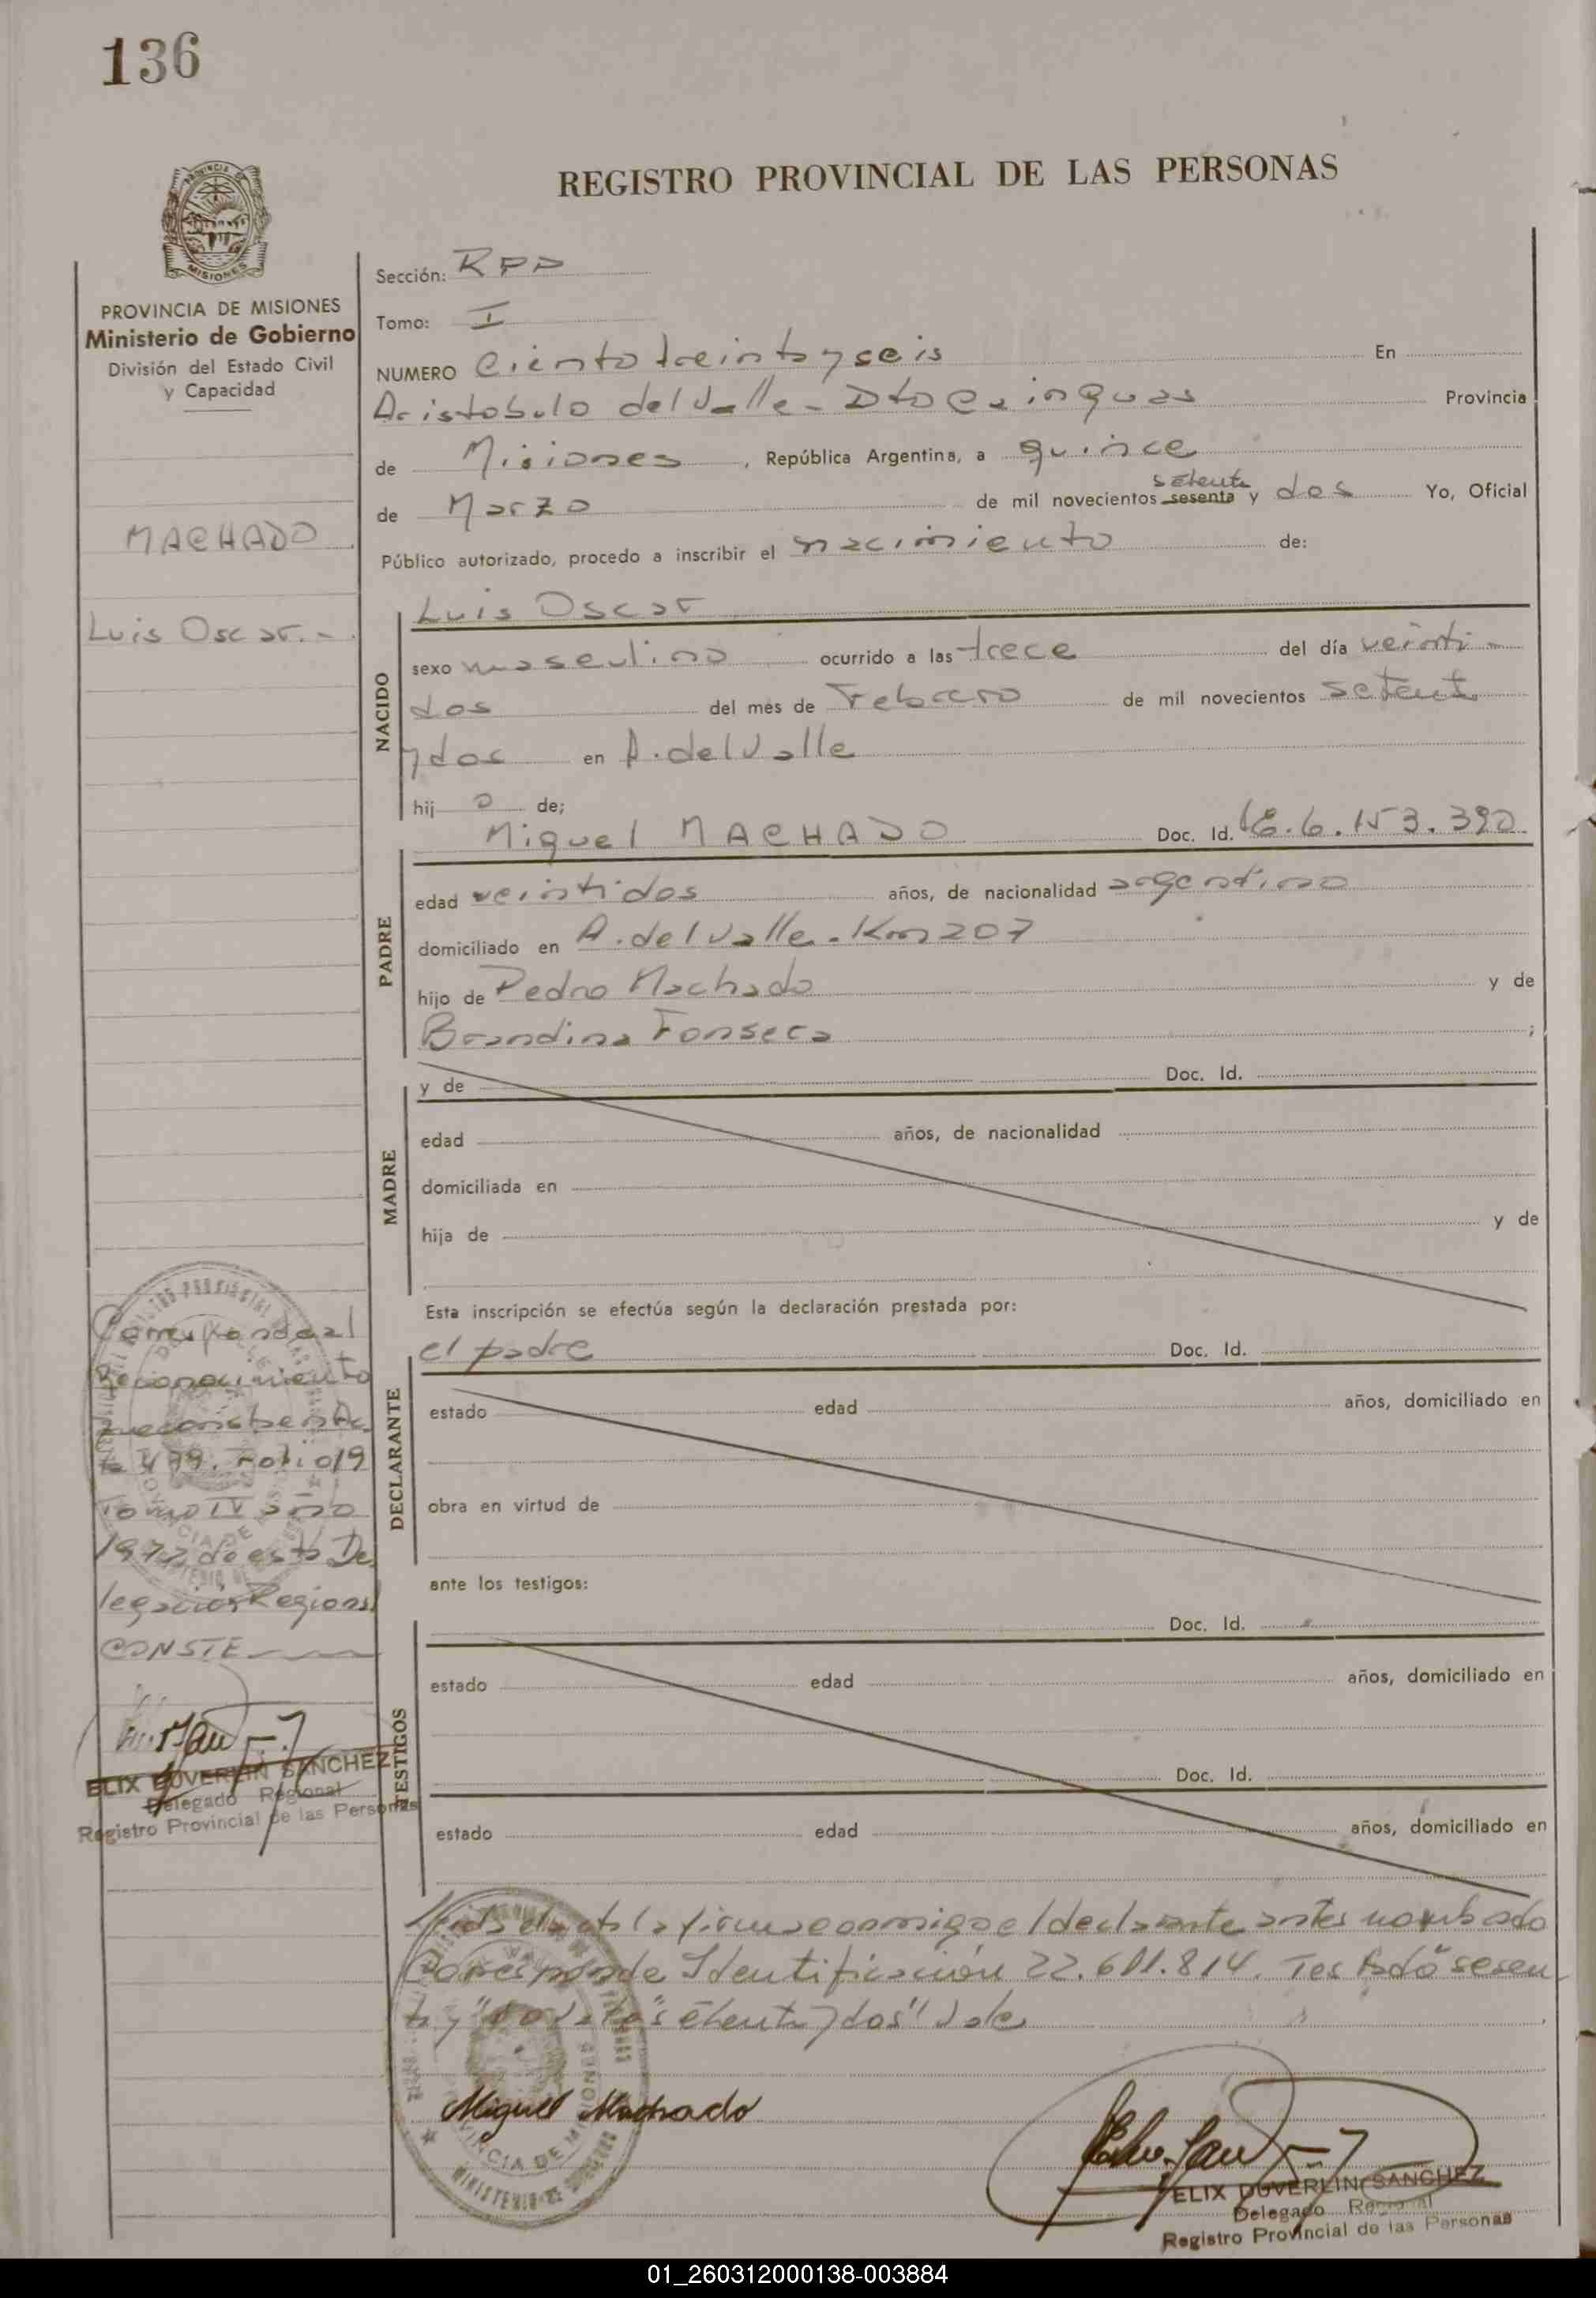 136
REGISTRO PROVINCIAL DE LAS PERSONAS
PROVINCIA DE MISIONES
Ministerio de Gobierno
División del Estado Civil
y Capacidad
MACHADO
Luis Oscar.-
Sección: RPP
Tomo: I
NUMERO Ciento treinta y seis En
Aristobulo del Valle - Dto Cainguas Provincia
de Misiones, República Argentina, a quince
setenta
de Marzo de mil novecientos sesenta y dos Yo, Oficial
Público autorizado, procedo a inscribir el nacimiento de:
NACIDO
Luis Oscar
sexo masculino ocurrido a las trece del día veinti-
dos del mes de Febrero de mil novecientos setenta
y dos en A. del Valle
hijo de;
PADRE
Miguel MACHADO Doc. Id. 6.153.390
edad veintidos años, de nacionalidad argentino
domiciliado en A. del Valle - Km 207
hijo de Pedro Machado y de
Brandina Fonseca ;
MADRE
y de Doc. Id.
edad años, de nacionalidad
domiciliada en
hija de y de
Esta inscripción se efectúa según la declaración prestada por:
DECLARANTE
el padre Doc. Id.
estado edad años, domiciliado en
obra en virtud de
ante los testigos:
TESTIGOS
Doc. Id.
estado edad años, domiciliado en
Doc. Id.
estado edad años, domiciliado en
Corresponde al
Reconocimiento
que consta en Ac
ta 479. Folio 19
Tomo IV año
1972 de esta De
legación Regional
CONSTE
ELIX DUVERLIN SANCHEZ
Delegado Regional
Registro Provincial de las Personas
Leida el acta la firma conmigo el declarante antes nombrado
Corresponde Identificación 22.611.814. Testado "sesen
ta y "setenta y dos" Vale
Miguel Machado
ELIX DUVERLIN SANCHEZ
Delegado Regional
Registro Provincial de las Personas
01_260312000138-003884